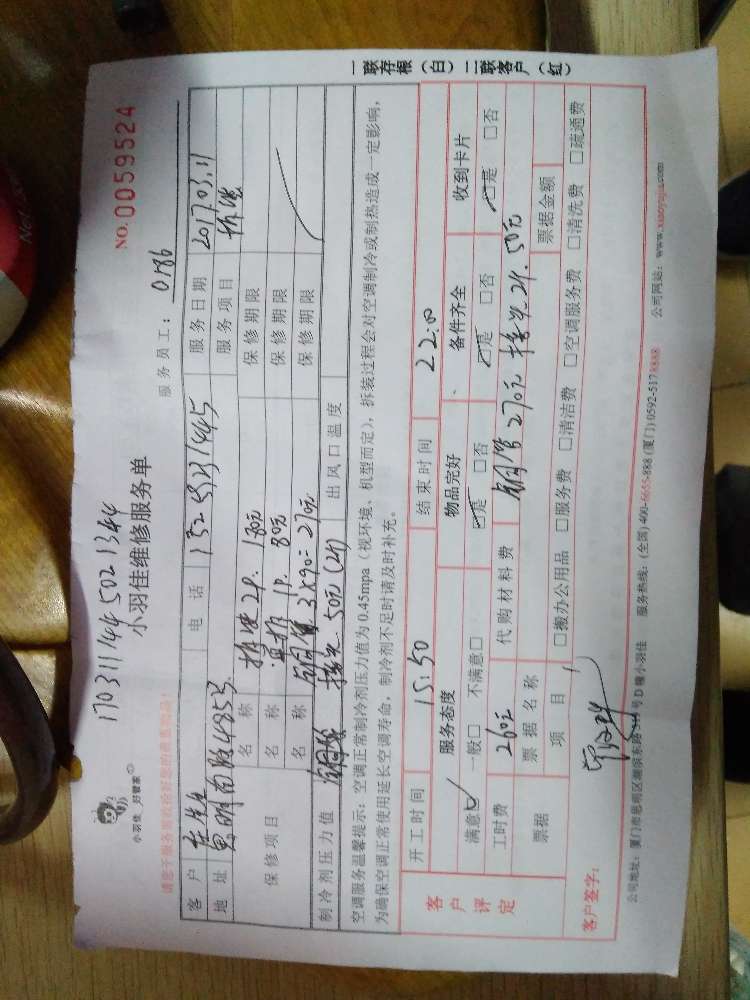 170311445021344
NO.0059524
小羽佳 好管家
小羽佳维修服务单
服务员工: 0186
请您于服务前收捡好您的贵重物品!
客户 电话 服务日期 2017.03.11
地址 思明南路485号 服务项目 拆装
保修项目
名称 拆装2P. 180元 保修期限
名称 直拆1P. 80元 保修期限
名称 铜管3×90=270元 保修期限
制冷剂压力值 接头50元(2个) 出风口温度
空调服务温馨提示:空调正常制冷剂压力值为0.45mpa(视环境、机型而定),拆装过程会对空调制冷或制热造成一定影响,
为确保空调正常使用延长空调寿命,制冷剂不足时请及时补充。
一联存根(白)二联客户(红)
客户评定
开工时间 15:50 结束时间 22:00
服务态度 物品完好 备件齐全 收到卡片
满意☑ 一般□ 不满意□ ☑是 □否 ☑是 □否 ☑是 □否
工时费 260元 代购材料费 铜管270元 接头2个.50元
票据 票据名称 票据金额
项目 □搬办公用品 □服务费 □清洁费 □空调服务费 □清洗费 □疏通费
客户签字:
公司地址:厦门市思明区湖滨东路 号D幢小羽佳 服务热线:(全国)400-6655-888 (厦门)0592-5178888 公司网站:www.xiaoyujia.com